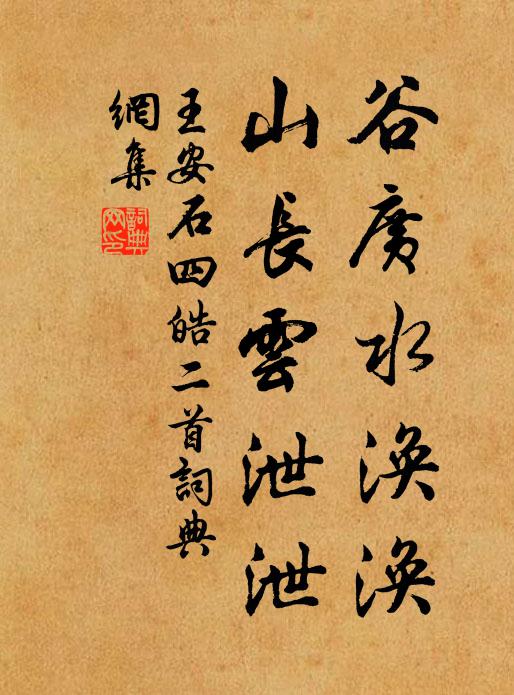 谷廣水渙渙
山長雲泄泄
王安石四皓二首詞典
網集
詞典網印